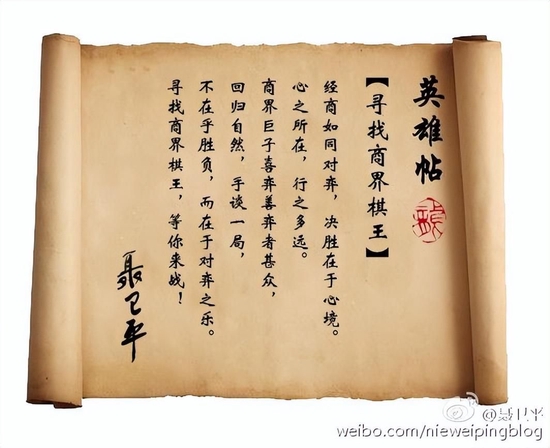 英雄帖
【寻找商界棋王】
经商如同对弈，决胜在于心境。
心之所在，行之多远。
商界巨子喜弈善弈者甚众，
回归自然，手谈一局，
不在乎胜负，而在于对弈之乐。
寻找商界棋王，等你来战！
聂卫平
@聂卫平
weibo.com/nieweipingblog